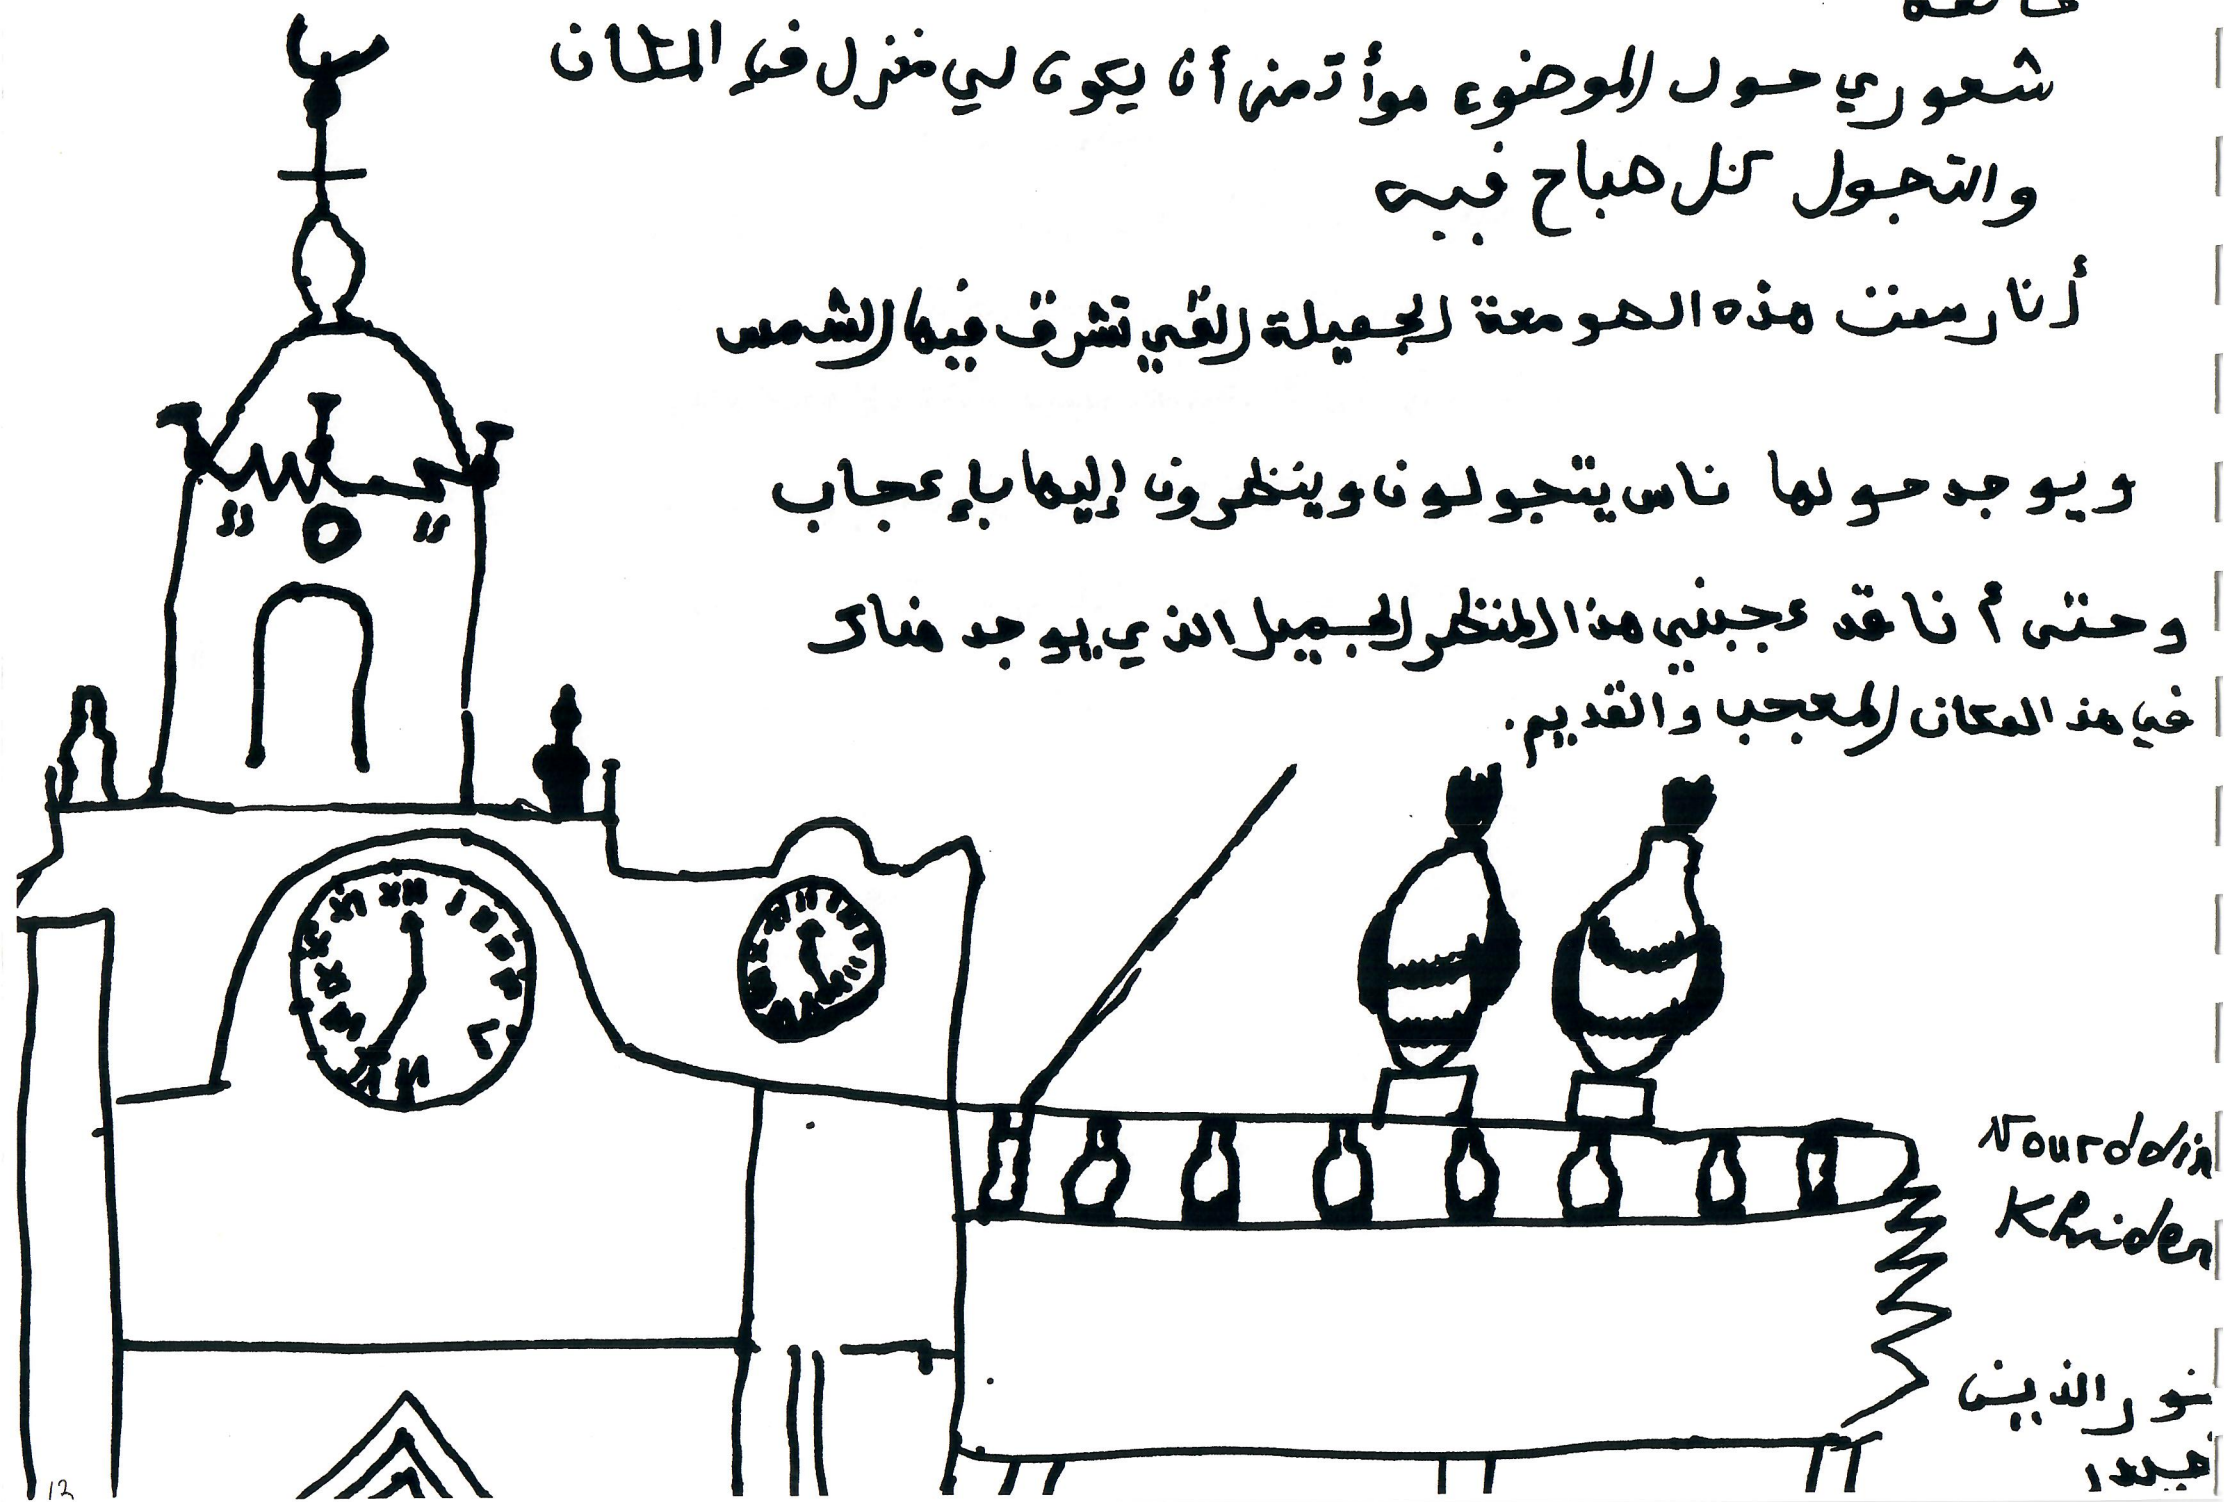 شعوري حول الموضوع هو أتمنى أن يكون لي منزل في المكان
والتجول كل هباح فيه
أنا رسمت هذه الهومعة الجميلة التي تشرق فيها الشمس
ويوجد حولها ناس يتجولون وينظرون إليها بإعجاب
وحتى أنا قد عجبني هذا المنظر الجميل الذي يوجد هناك
في هذ المكان المعجب والقديم.
Nourddin
Khider
نور الذين
12